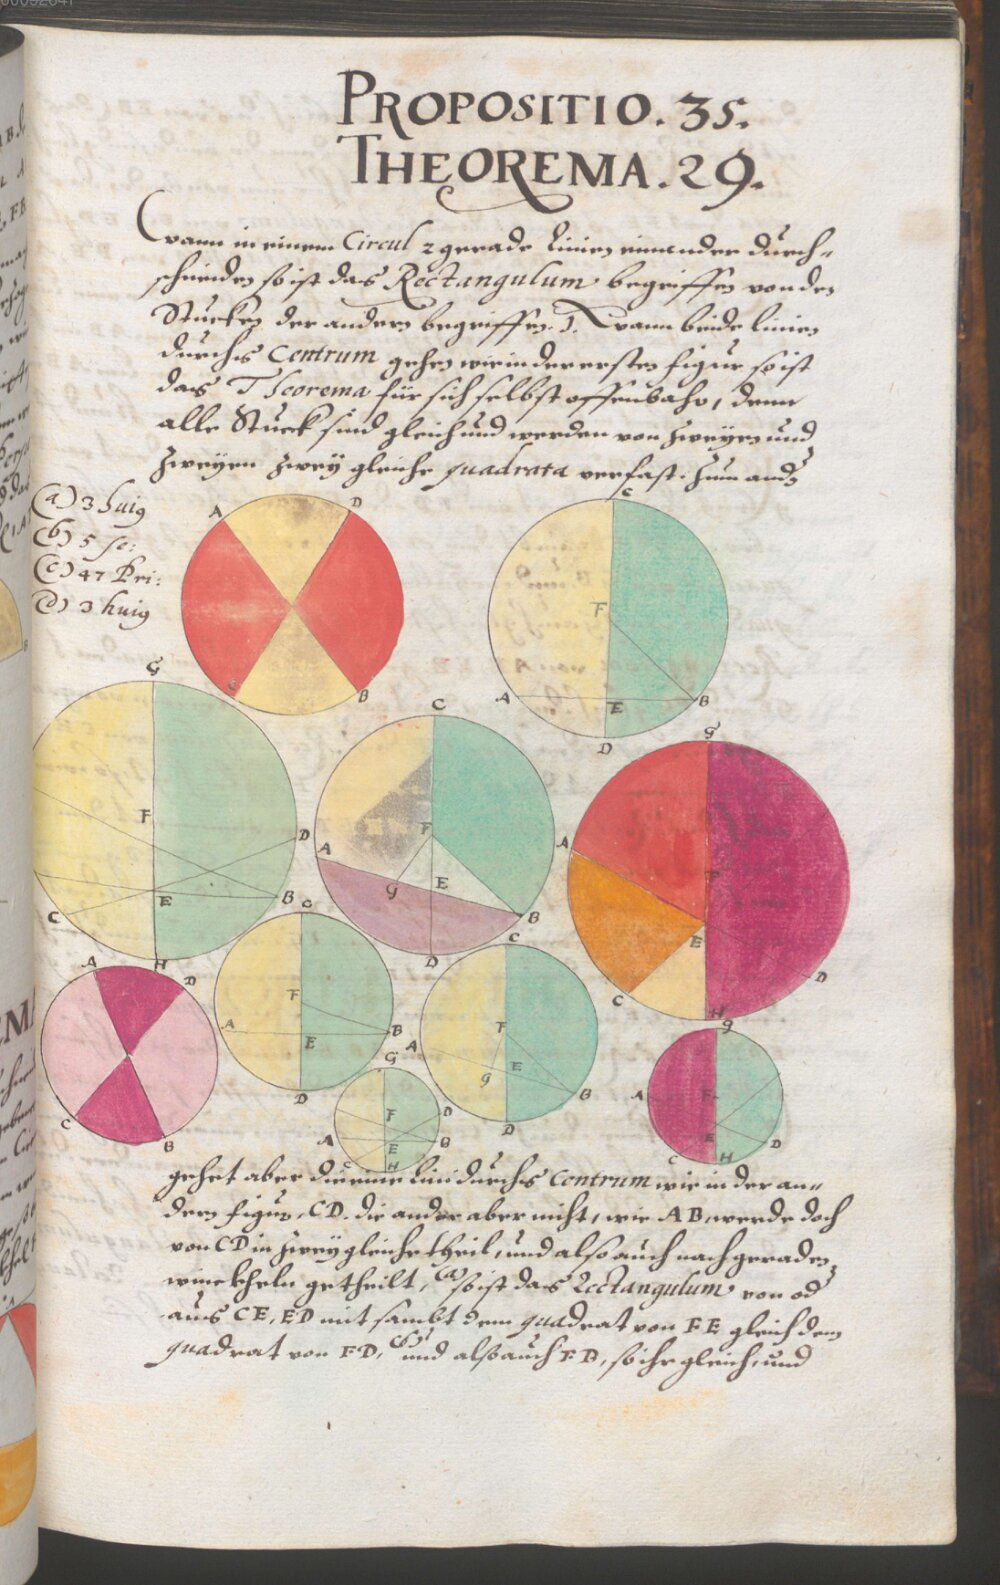 PROPOSITIO. 35.
THEOREMA. 29.
Wann in einem Circul 2 gerade Linien einander durch-
schneiden so ist das Rectangulum begriffen von den
Stucken der andern begriffen. 1. Wann beide linien
durchs Centrum gehen wie in der ersten figur so ist
das Theorema für sich selbst offenbahr, denn
alle Stuck sind gleich und werden von zweyen und
zweyen zwey gleiche quadrata verfast. Zum and
(a) 3 huig
(b) 5 se:
(c) 47 Pri:
(d) 3 huig
A D
C B
C
F
A E B
D
G
F
D
C E B
H
C
F
A
G E
B
D
G
A
F
E
C D
H
A D
C B
C
F
A E B
D
C
F
A
g E
B
D
G
F D
A E B
C H
g
A F
E D
C H
gehet aber die eine Lini durchs Centrum wie in der an-
dern figur, CD. die ander aber nicht, wie AB, werde doch
von CD in zwey gleiche theil, und also auch nach geraden
winckheln getheilt, (a) so ist das Rectangulum von od
aus CE, ED mit sambt dem quadrat von FE gleich dem
quadrat von FD, (b) und also auch FB, so ihr gleich, und